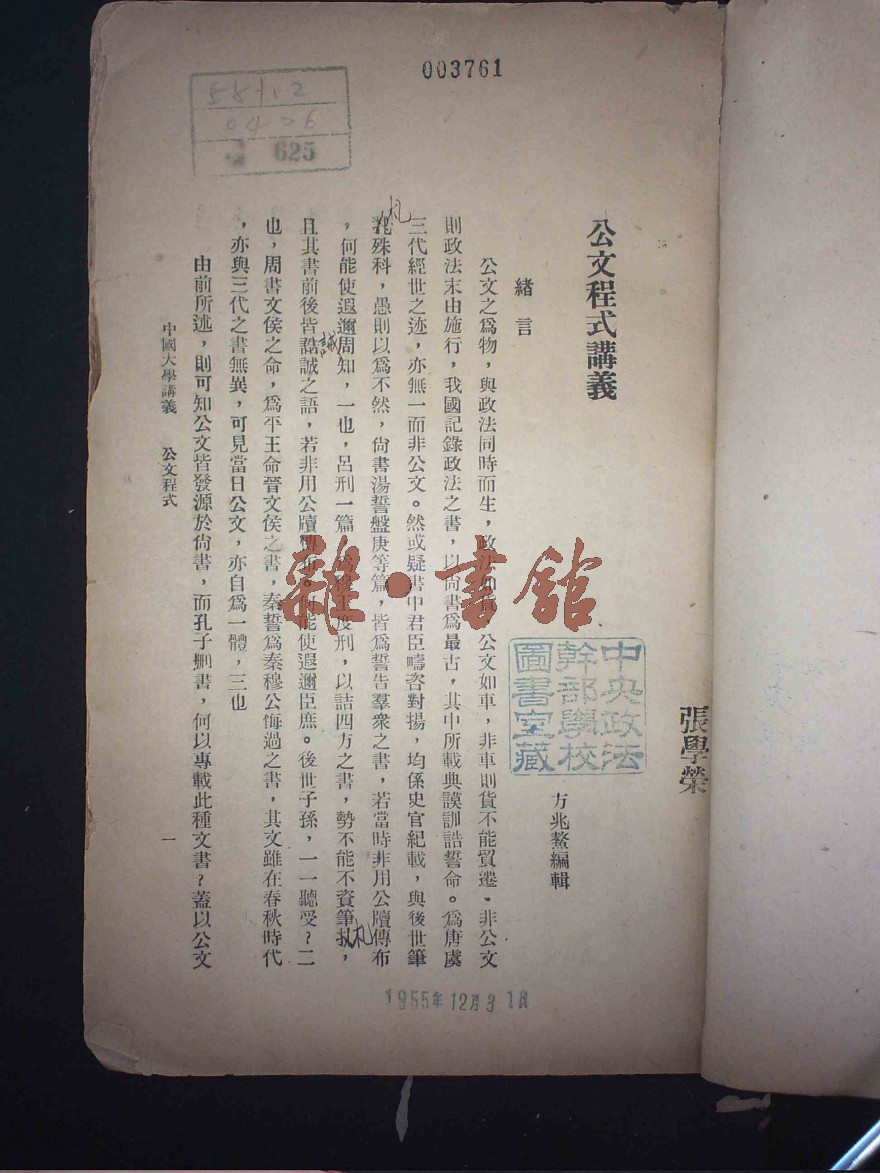 003761
58112
0406
625
張學榮
公文程式講義
方兆鰲編輯
緒言
公文之爲物，與政法同時而生，政法如貨，公文如車，非車則貨不能貿遷，非公文
則政法末由施行，我國記錄政法之書，以尙書爲最古，其中所載典謨訓誥誓命。爲唐虞
三代經世之迹，亦無一而非公文。然或疑書中君臣疇咨對揚，均係史官紀載，與後世筆
札
殊科，愚則以爲不然，尙書湯誓盤庚等篇，皆爲誓告羣衆之書，若當時非用公牘傳布
，何能使遐邇周知，一也，呂刑一篇 王度刑，以詰四方之書，勢不能不資筆扎，
札
誡
且其書前後皆誥誠之語，若非用公牘 何能使遐邇臣庶。後世子孫，一一聽受？二
也，周書文侯之命，爲平王命晉文侯之書，秦誓爲秦穆公悔過之書，其文雖在春秋時代
，亦與三代之書無異，可見當日公文，亦自爲一體，三也
由前所述，則可知公文皆發源於尙書，而孔子刪書，何以專載此種文書？蓋以公文
中國大學講義 公文程式 一
中央政法
幹部學校
圖書室藏
1955年12月31日
雜·書館